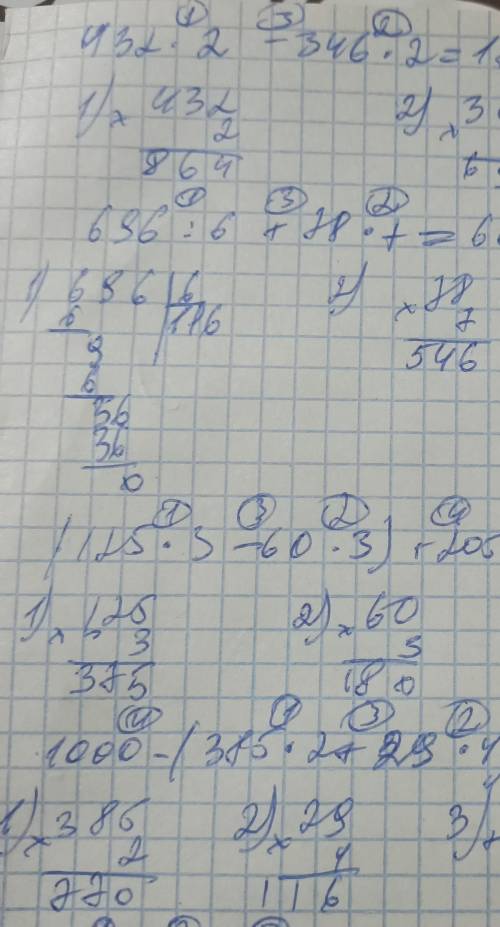 ① ③ ②
432 · 2 - 346 · 2 = 1
1) × 432 2) × 3
2
864 6
① ③ ②
696 : 6 + 78 · 7 = 6
1) 696 | 6 2) × 78
6 116 7
9 546
6
36
36
0
① ③ ② ④
(125 · 3 - 60 · 3) + 205
1) × 125 2) × 60
3 3
375 180
④ ① ③ ②
1000 - (385 · 2 + 29 · 4
1) × 385 2) × 29 3)
2 4
770 116